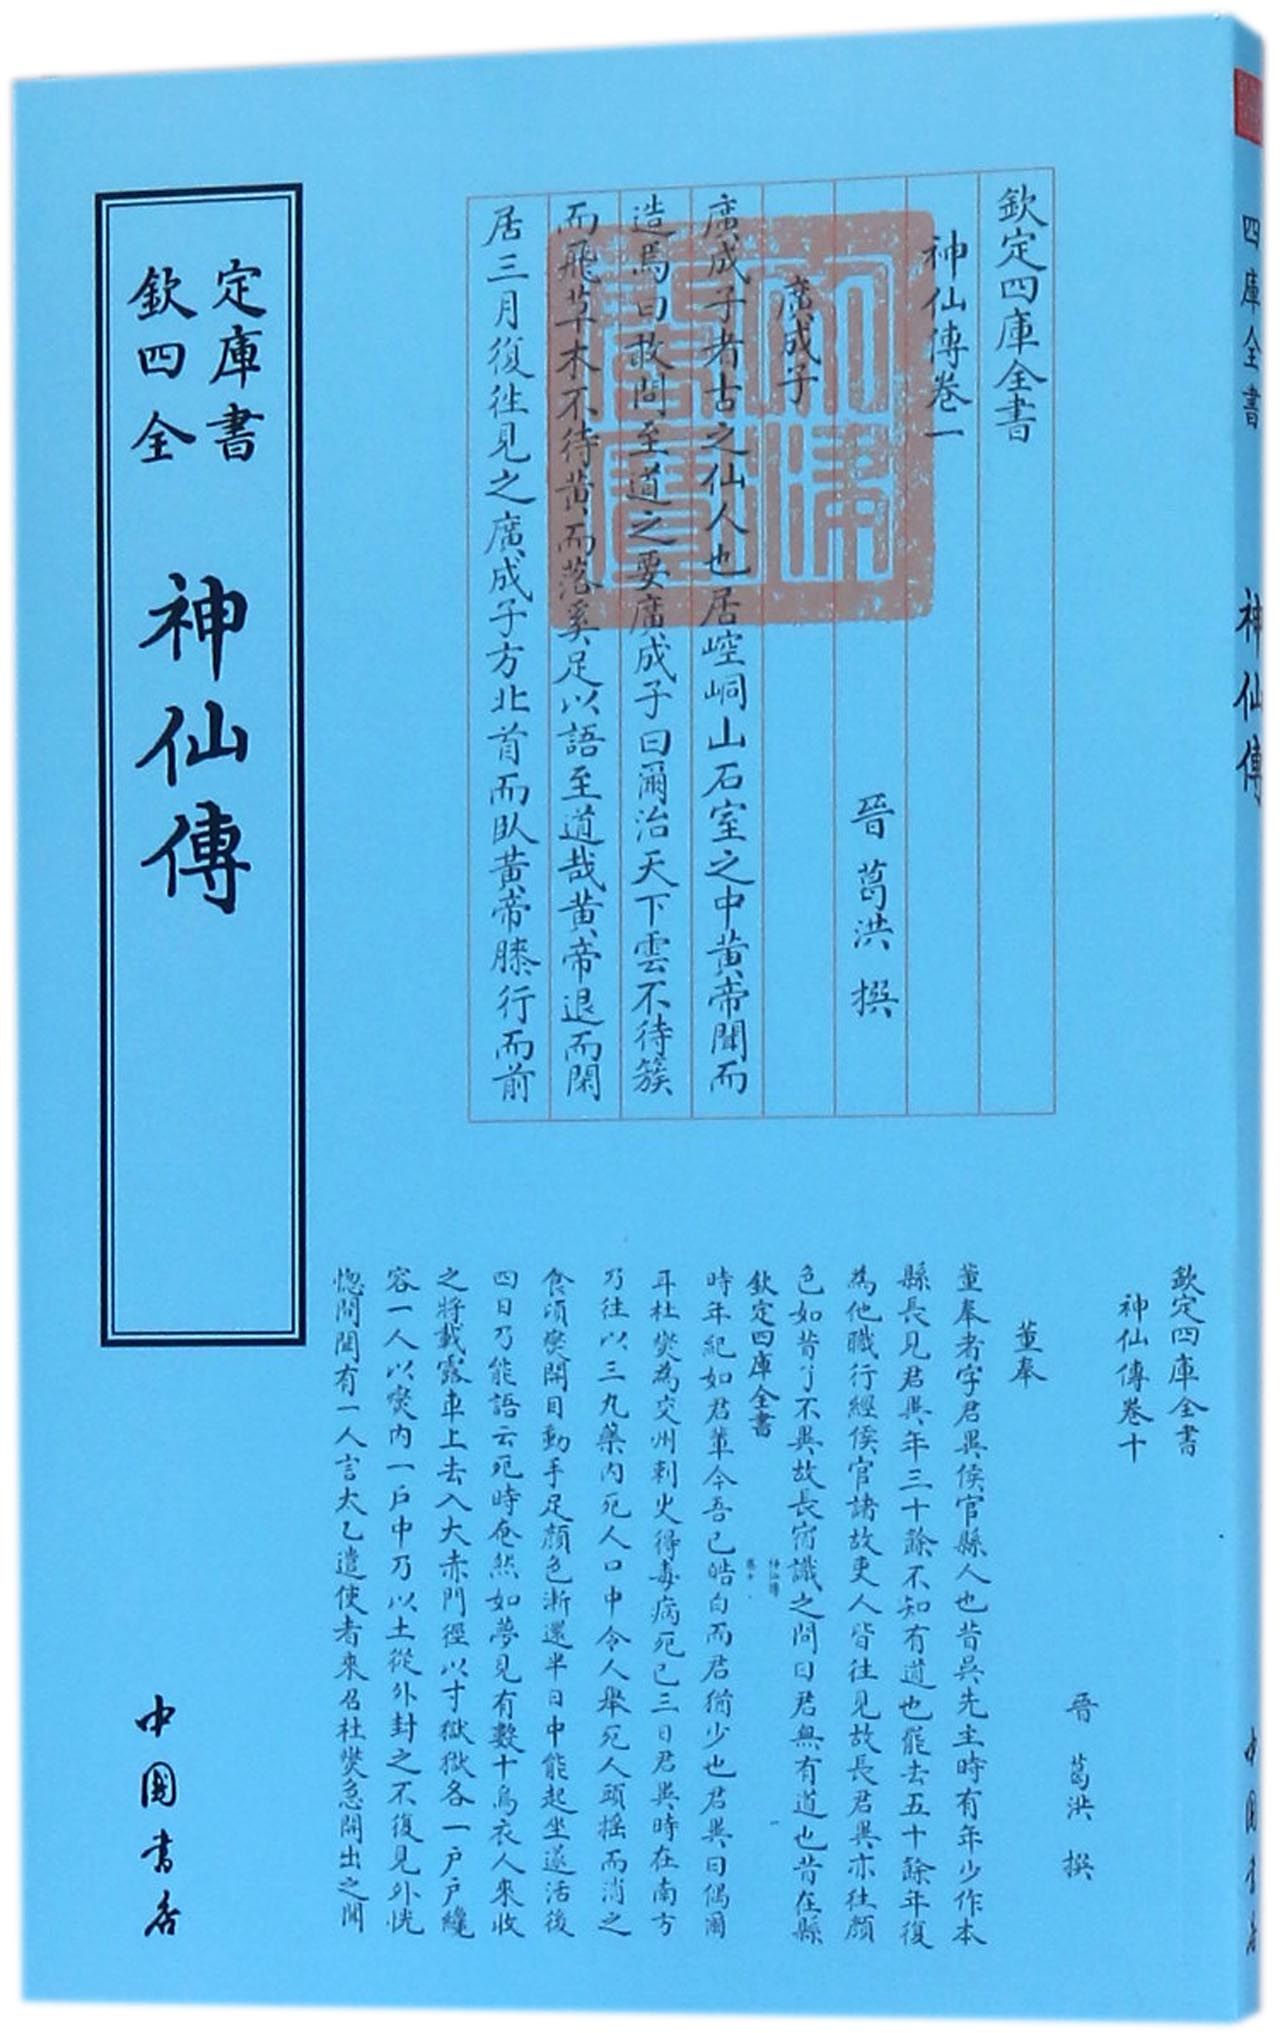 欽定四庫全書
神仙傳
中國書店
欽定四庫全書
神仙傳卷一
晉 葛洪 撰
廣成子
廣成子者古之仙人也居崆峒山石室之中黃帝聞而
造焉曰敢問至道之要廣成子曰爾治天下雲不待簇
而飛草木不待黃而落奚足以語至道哉黃帝退而閑
居三月復往見之廣成子方北首而臥黃帝膝行而前
欽定四庫全書
神仙傳卷十
晉 葛洪 撰
董奉
董奉者字君異侯官縣人也昔吳先主時有年少作本
縣長見君異年三十餘不知有道也罷去五十餘年復
為他職行經侯官諸故吏人皆往見故長君異亦往顏
色如昔了不異故長宿識之問曰君無有道也昔在縣
欽定四庫全書
神仙傳
卷十
時年紀如君輩今吾已皓白而君猶少也君異曰偶爾
耳杜燮為交州刺史得毒病死已三日君異時在南方
乃往以三丸藥內死人口中令人舉死人頭搖而消之
食頃燮開目動手足顏色漸還半日中能起坐遂活後
四日乃能語云死時奄然如夢見有數十烏衣人來收
之將載露車上去入大赤門徑以寸獄獄各一戶戶纔
容一人以燮內一戶中乃以土從外封之不復見外恍
惚間聞有一人言太乙遣使者來召杜燮急開出之聞
四庫全書
神仙傳
中國書店